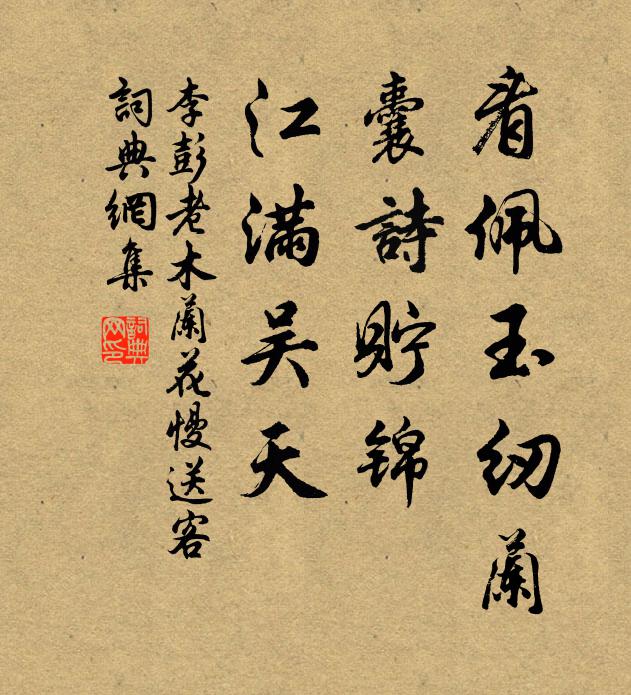 看佩玉纫蘭
囊詩貯锦
江满吴天
李彭老木蘭花慢送客
詞典網集
詞典网印